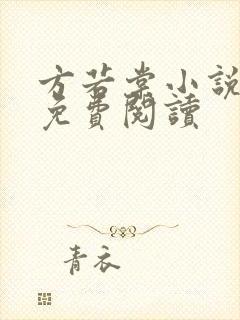 方若棠小説
免費閱讀
青衣